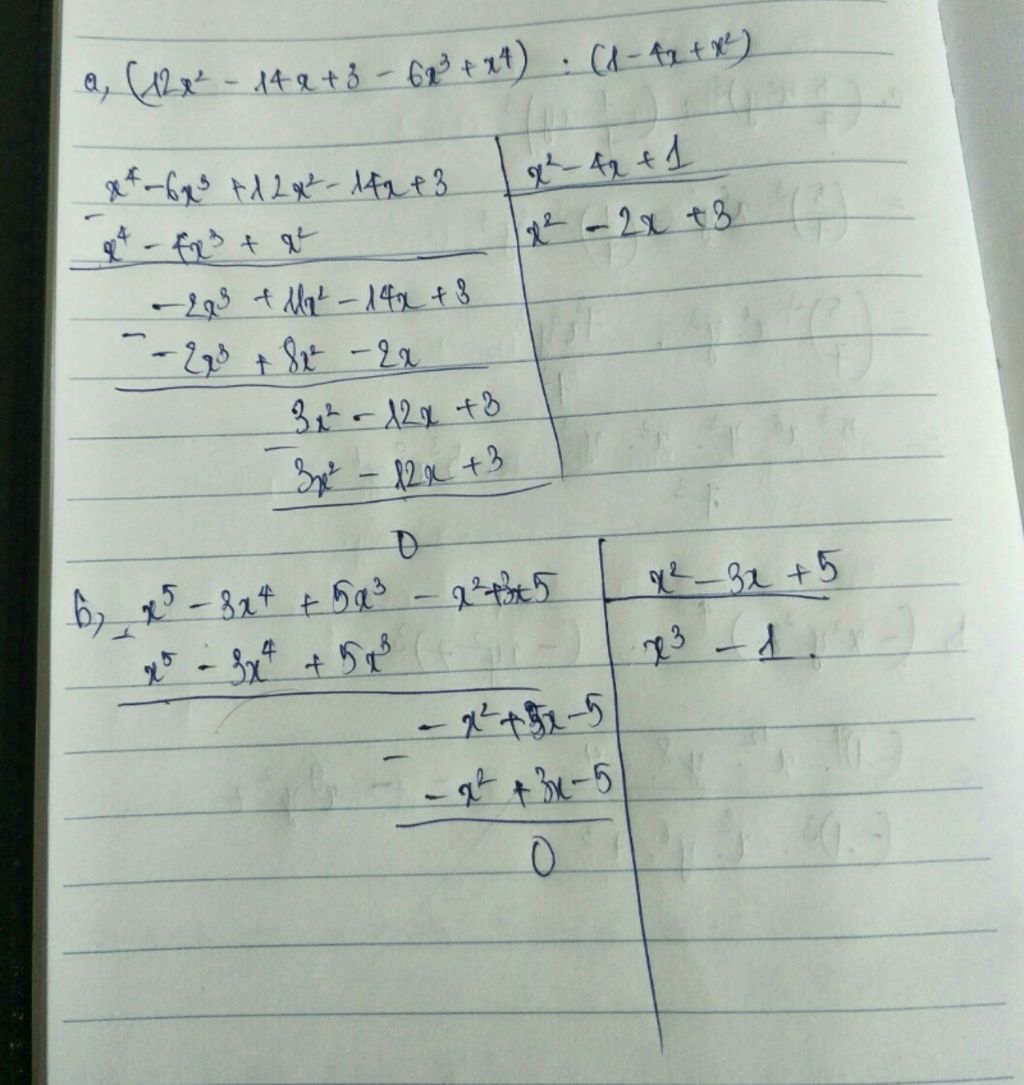 a, (12x² - 14x + 3 - 6x³ + x⁴) : (1 - 4x + x²)
x⁴ - 6x³ + 12x² - 14x + 3
x² - 4x + 1
-
x⁴ - 4x³ + x²
x² - 2x + 3
- 2x³ + 11x² - 14x + 3
-
- 2x³ + 8x² - 2x
3x² - 12x + 3
-
3x² - 12x + 3
0
b, x⁵ - 3x⁴ + 5x³ - x² + 3x - 5
x² - 3x + 5
-
x⁵ - 3x⁴ + 5x³
x³ - 1.
- x² + 3x - 5
-
- x² + 3x - 5
0